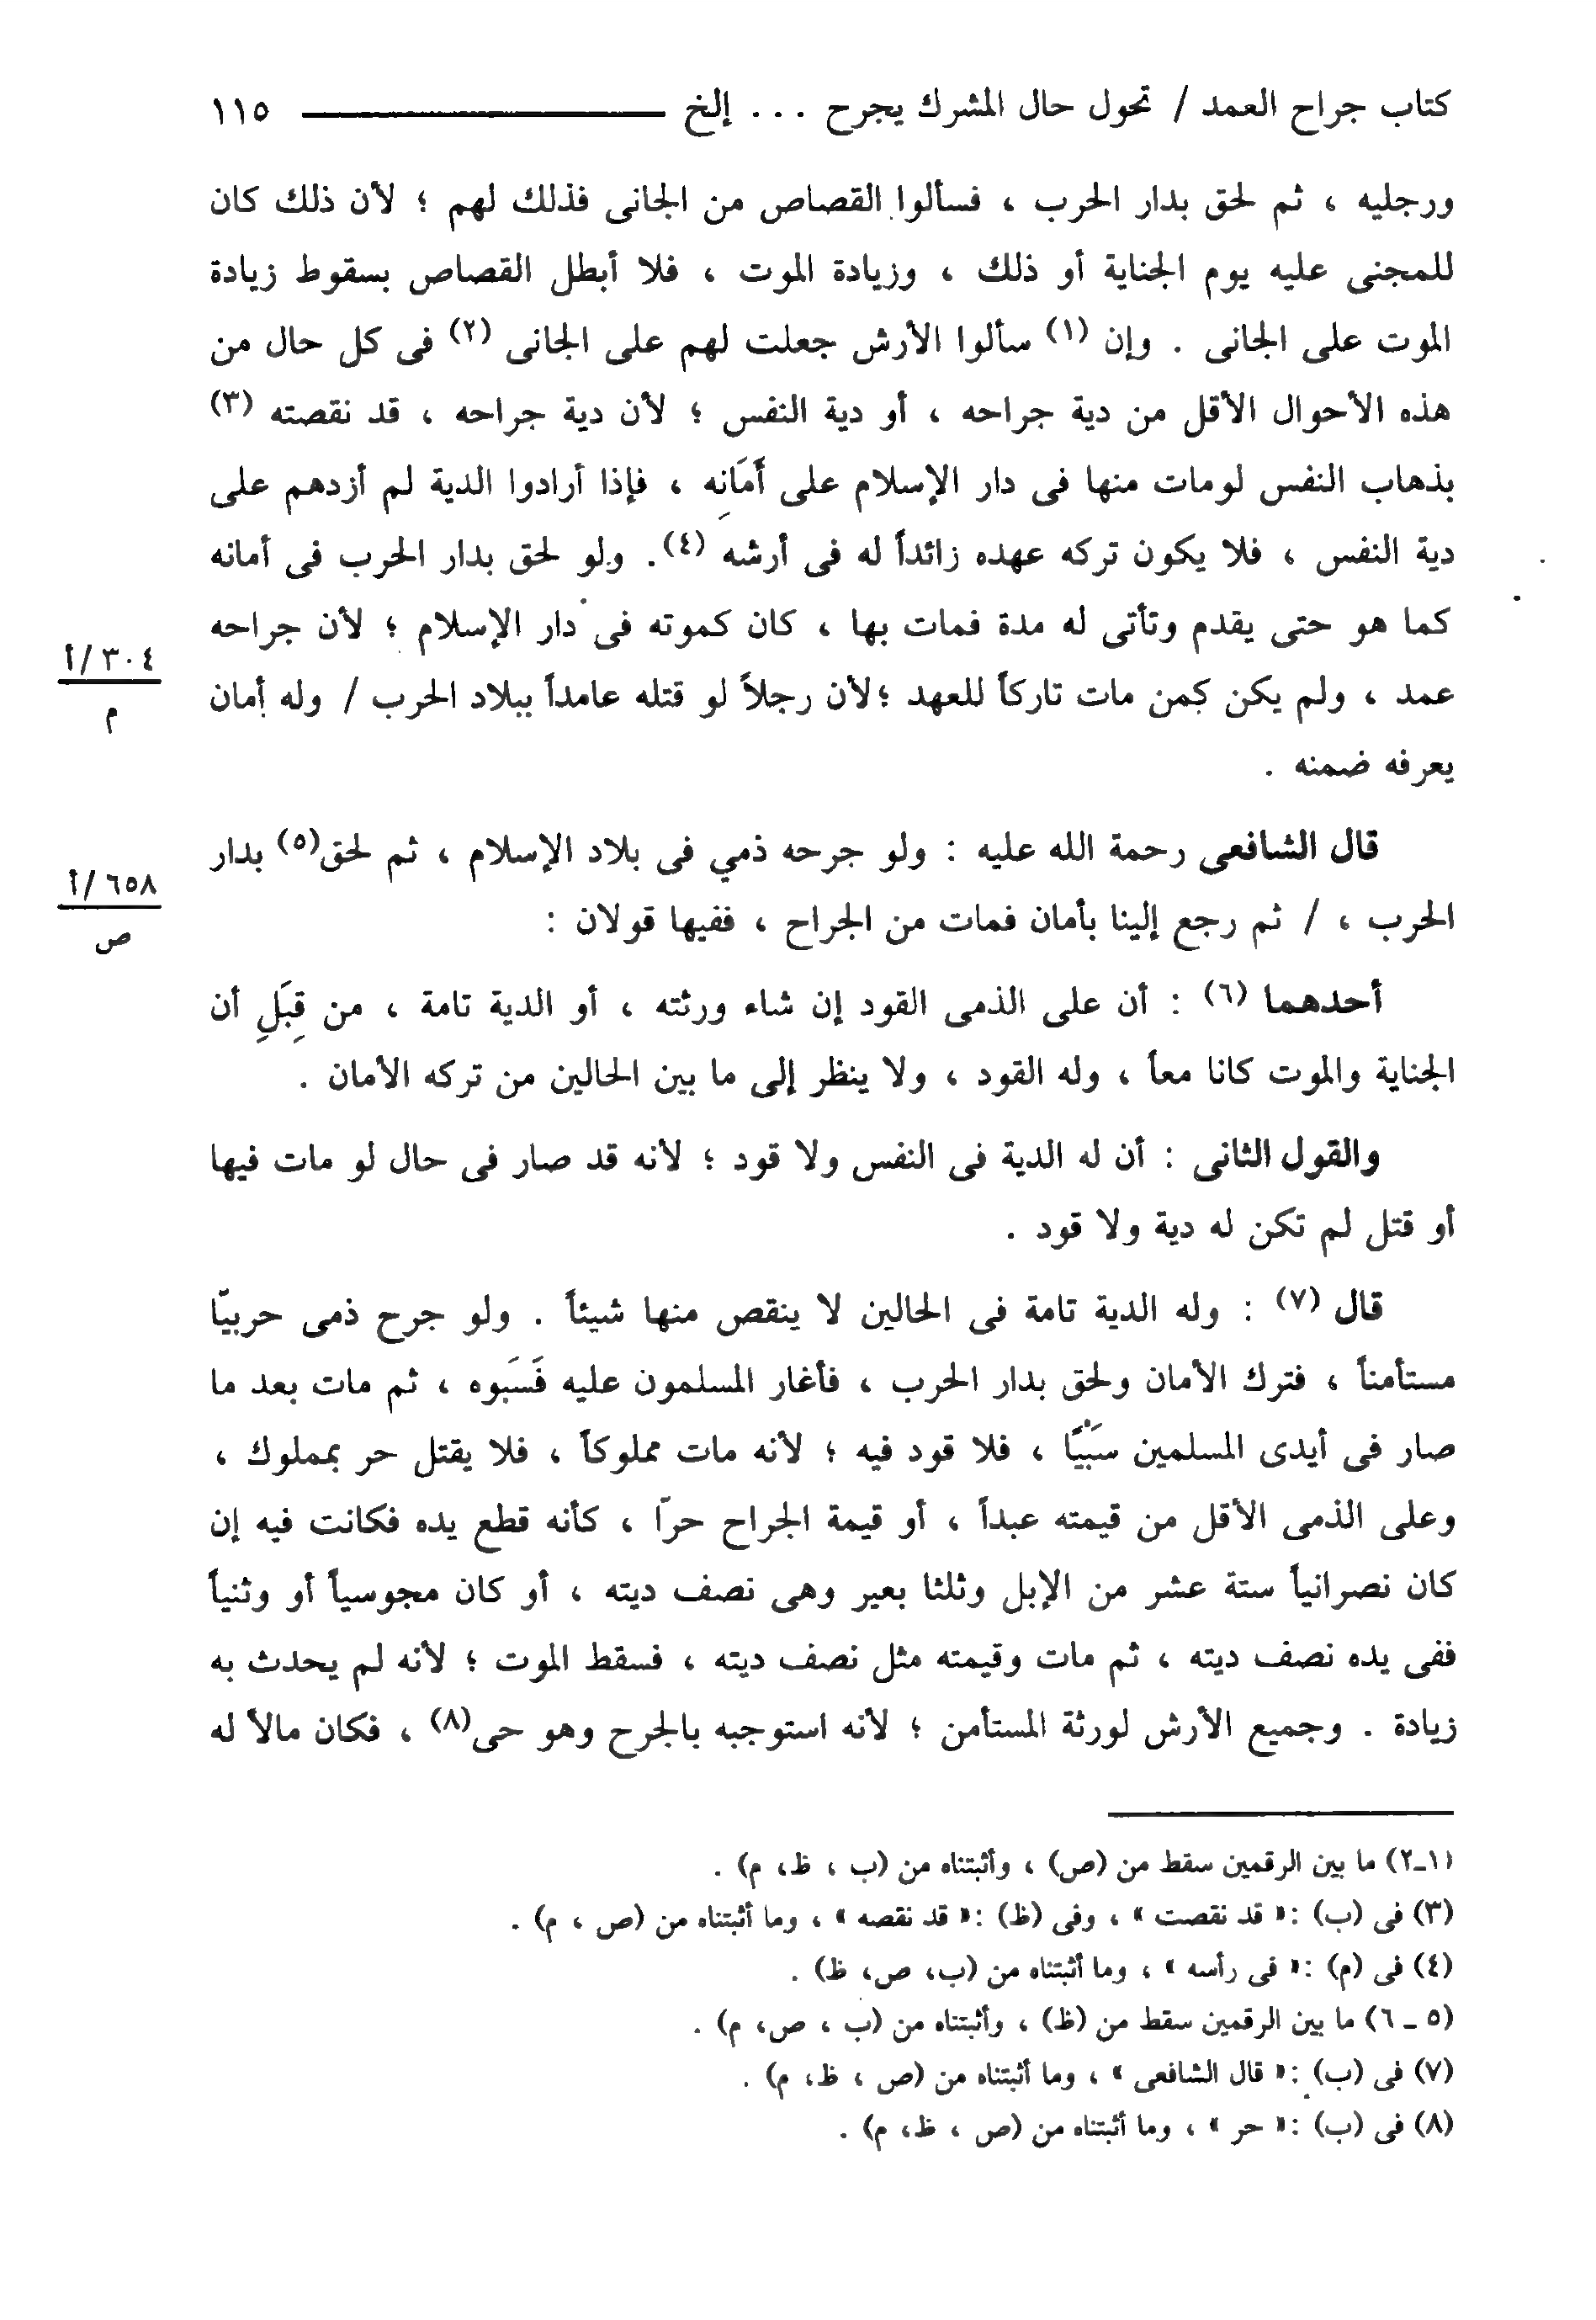 كتاب جراح العمد / تحول حال المشرك يجرح ... إلخ ١١٥
ورجليه ، ثم لحق بدار الحرب ، فسألوا القصاص من الجانى فذلك لهم ؛ لأن ذلك كان
للمجنى عليه يوم الجناية أو ذلك ، وزيادة الموت ، فلا أبطل القصاص بسقوط زيادة
الموت على الجانى . وإن (١) سألوا الأرش جعلت لهم على الجانى (٢) فى كل حال من
هذه الأحوال الأقل من دية جراحه ، أو دية النفس ؛ لأن دية جراحه ، قد نقصته (٣)
بذهاب النفس لومات منها فى دار الإسلام على أَمَانِه ، فإذا أرادوا الدية لم أزدهم على
دية النفس ، فلا يكون تركه عهده زائداً له فى أرشه (٤). ولو لحق بدار الحرب فى أمانه
كما هو حتى يقدم وتأتى له مدة فمات بها ، كان كموته فى دار الإسلام ؛ لأن جراحه
٣٠٤/أ
عمد ، ولم يكن كمن مات تاركاً للعهد ؛لأن رجلاً لو قتله عامداً ببلاد الحرب / وله أمان
م
يعرفه ضمنه .
قال الشافعى رحمة الله عليه : ولو جرحه ذمي فى بلاد الإسلام ، ثم لحق(٥) بدار
٦٥٨/أ
الحرب ، / ثم رجع إلينا بأمان فمات من الجراح ، ففيها قولان :
ص
أحدهما (٦) : أن على الذمى القود إن شاء ورثته ، أو الدية تامة ، من قِبَلِ أن
الجناية والموت كانا معاً ، وله القود ، ولا ينظر إلى ما بين الحالين من تركه الأمان .
والقول الثانى : أن له الدية فى النفس ولا قود ؛ لأنه قد صار فى حال لو مات فيها
أو قتل لم تكن له دية ولا قود .
قال (٧) : وله الدية تامة فى الحالين لا ينقص منها شيئاً . ولو جرح ذمى حربيّا
مستأمناً ، فترك الأمان ولحق بدار الحرب ، فأغار المسلمون عليه فَسَبَوه ، ثم مات بعد ما
صار فى أيدى المسلمين سَبْيًا ، فلا قود فيه ؛ لأنه مات مملوكاً ، فلا يقتل حر بمملوك ،
وعلى الذمى الأقل من قيمته عبداً ، أو قيمة الجراح حرّا ، كأنه قطع يده فكانت فيه إن
كان نصرانياً ستة عشر من الإبل وثلثا بعير وهى نصف ديته ، أو كان مجوسياً أو وثنياً
ففى يده نصف ديته ، ثم مات وقيمته مثل نصف ديته ، فسقط الموت ؛ لأنه لم يحدث به
زيادة . وجميع الأرش لورثة المستأمن ؛ لأنه استوجبه بالجرح وهو حى(٨) ، فكان مالاً له
(١ـ٢) ما بين الرقمين سقط من (ص) ، وأثبتناه من (ب ، ظ، م) .
(٣) فى (ب) :« قد نقصت » ، وفى (ظ) :« قد نقصه » ، وما أثبتناه من (ص ، م) .
(٤) فى (م) :« فى رأسه » ، وما أثبتناه من (ب، ص، ظ) .
(٥ ـ ٦) ما بين الرقمين سقط من (ظ) ، وأثبتناه من (ب ، ص، م) .
(٧) فى (ب) :« قال الشافعى » ، وما أثبتناه من (ص ، ظ، م) .
(٨) فى (ب) :« حر » ، وما أثبتناه من (ص ، ظ، م) .